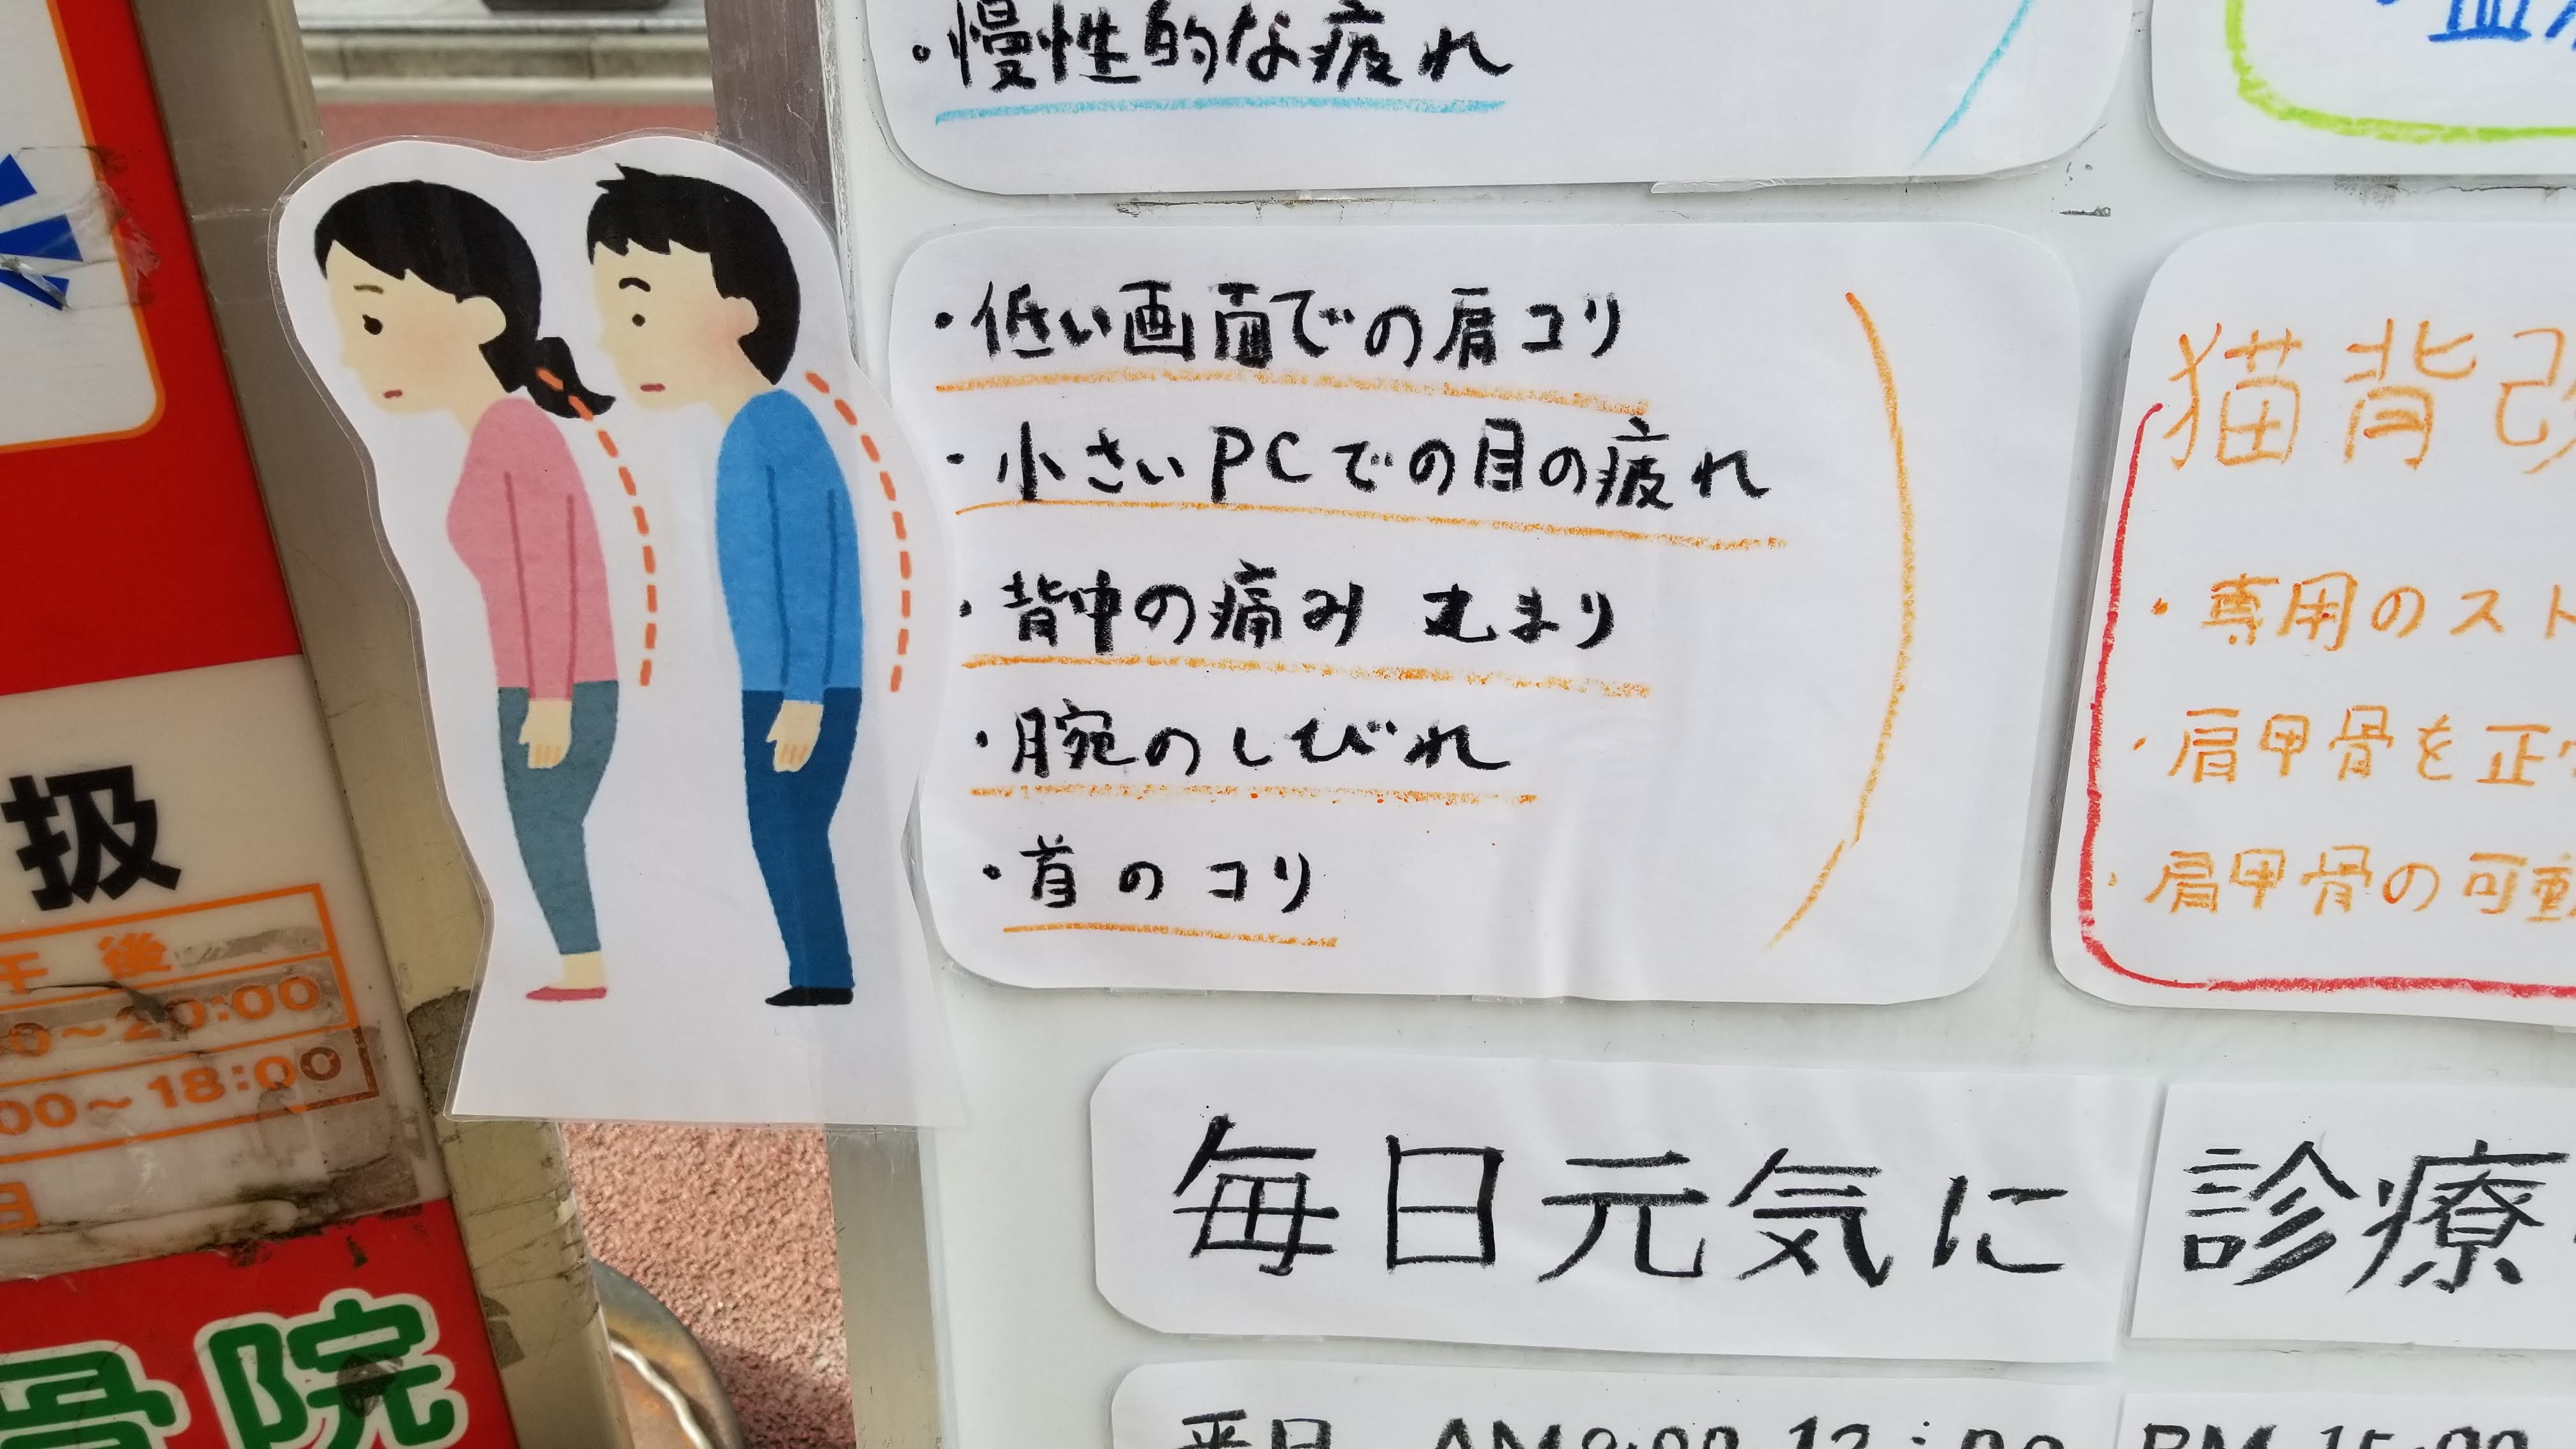 ・慢性的な疲れ
・低い画面での肩コリ
・小さいPCでの目の疲れ
・背中の痛み 丸まり
・腕のしびれ
・首のコリ
猫背改
・専用のスト
・肩甲骨を正常
・肩甲骨の可動
毎日元気に 診療
平日 AM9:00-12:00 PM 15:00
扱
午後
0～20:00
00～18:00
骨院